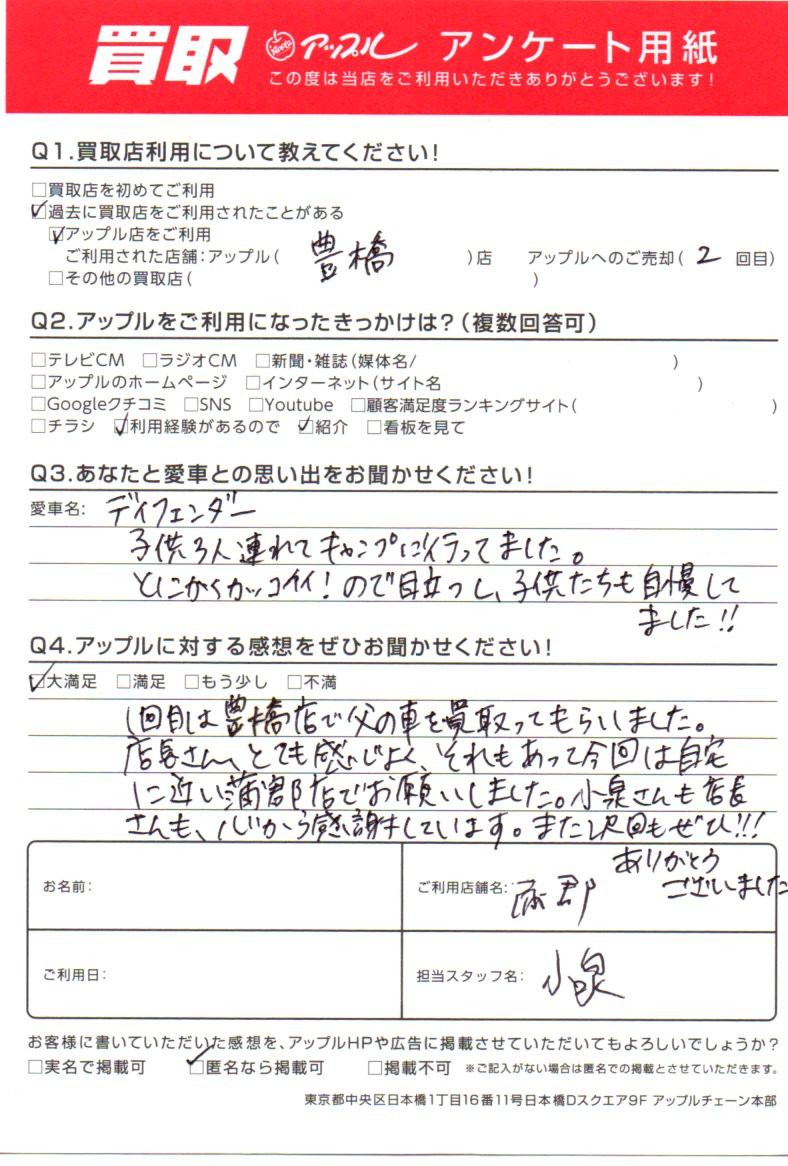 買取 Apple アップル アンケート用紙
この度は当店をご利用いただきありがとうございます！
Q1.買取店利用について教えてください！
□買取店を初めてご利用
☑過去に買取店をご利用されたことがある
☑アップル店をご利用
ご利用された店舗：アップル（ 豊橋 ）店 アップルへのご売却（ 2 回目）
□その他の買取店（ ）
Q2.アップルをご利用になったきっかけは？（複数回答可）
□テレビCM □ラジオCM □新聞・雑誌（媒体名/ ）
□アップルのホームページ □インターネット（サイト名 ）
□Googleクチコミ □SNS □Youtube □顧客満足度ランキングサイト（ ）
□チラシ ☑利用経験があるので ☑紹介 □看板を見て
Q3.あなたと愛車との思い出をお聞かせください！
愛車名： ディフェンダー
子供3人連れてキャンプに行ってました。
とにかくカッコイイ！ので目立つし、子供たちも自慢して
ました!!
Q4.アップルに対する感想をぜひお聞かせください！
☑大満足 □満足 □もう少し □不満
1回目は豊橋店で父の車を買取ってもらいました。
店長さん、とても感じよく、それもあって今回は自宅
に近い蒲郡店でお願いしました。小泉さんも店長
さんも、心から感謝しています。また次回もぜひ!!!
ありがとう
ございました
お名前：
ご利用店舗名： 蒲郡
ご利用日：
担当スタッフ名： 小泉
お客様に書いていただいた感想を、アップルHPや広告に掲載させていただいてもよろしいでしょうか？
□実名で掲載可 ☑匿名なら掲載可 □掲載不可 ※ご記入がない場合は匿名での掲載とさせていただきます。
東京都中央区日本橋1丁目16番11号日本橋Dスクエア9F アップルチェーン本部